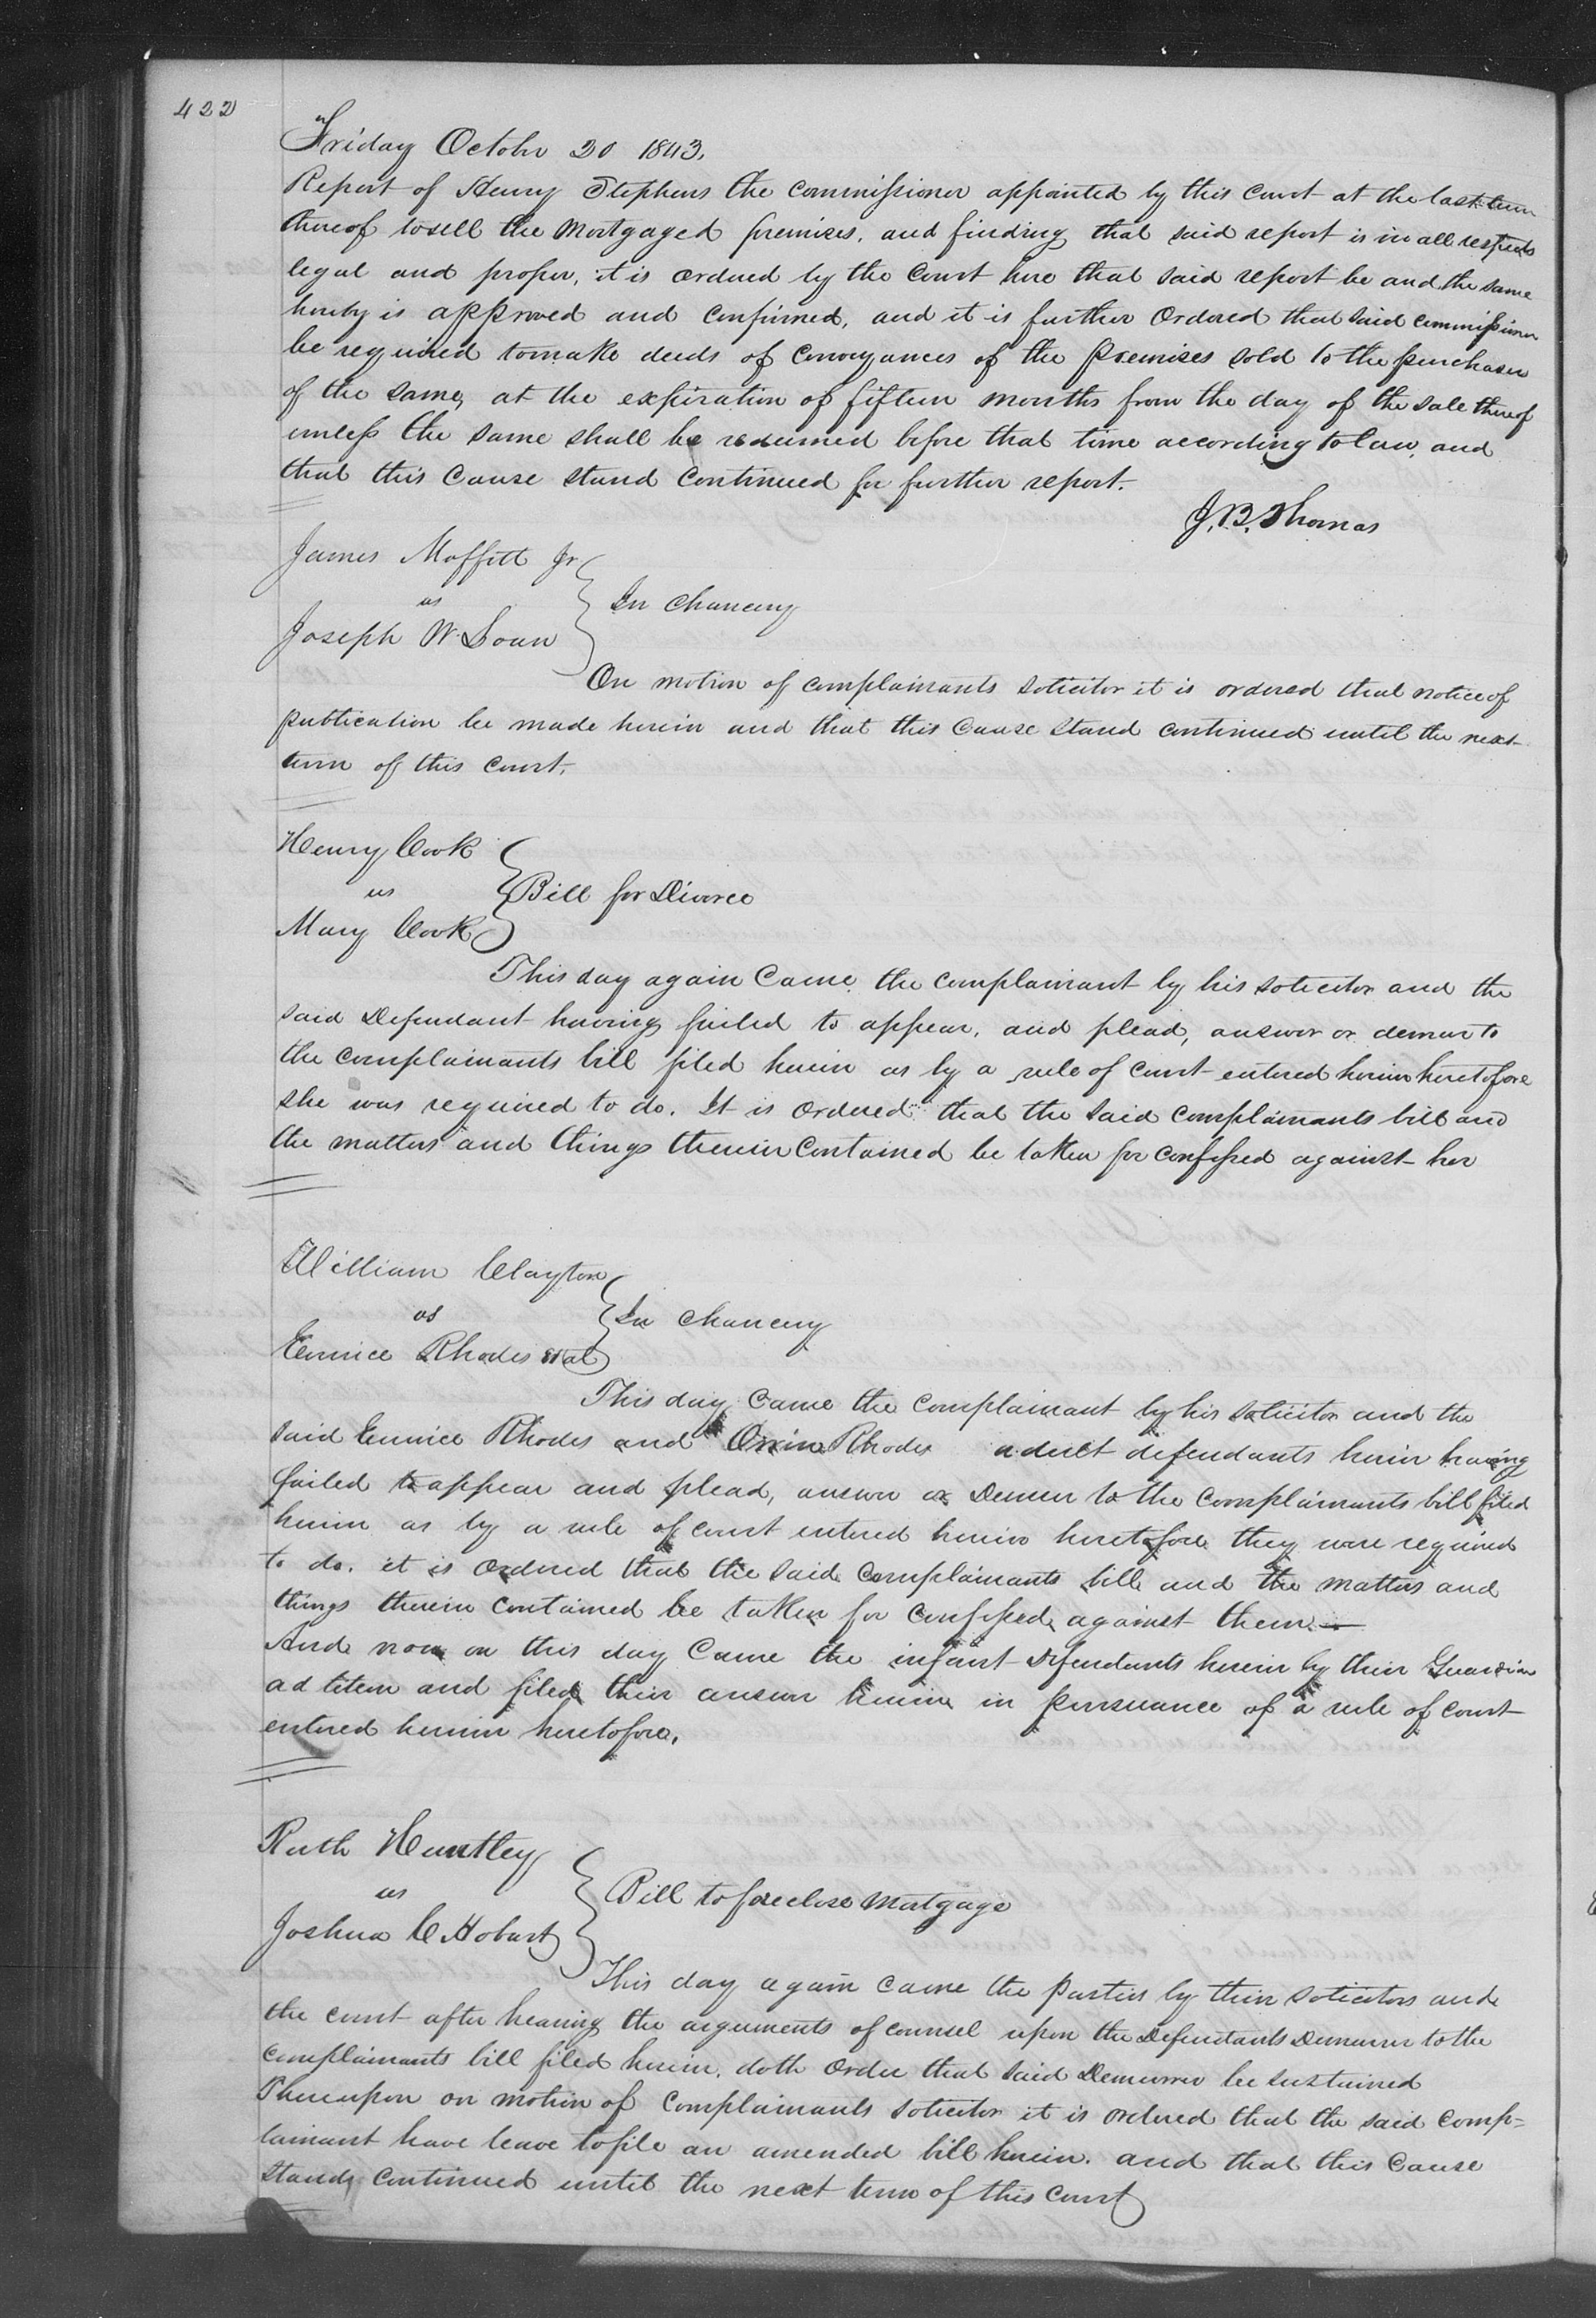 422
Friday October 20 1843.
Report of Henry Stephens the commissioner appointed by this Court at the last term
thereof to sell the Mortgaged premises, and finding that said report is in all respects
legal and proper, it is ordered by the Court here that said report be and the same
hereby is approved and confirmed, and it is further Ordered that said commissioner
be required to make deeds of conveyances of the premises sold to the purchaser
of the same, at the expiration of fifteen months from the day of the sale thereof
unless the same shall be redeemed before that time according to law, and
that this cause stand continued for further report.
J. B. Thomas
James Moffitt Jr
vs
In Chancery
Joseph W. Loan
On motion of complainants solicitor it is ordered that notice of
publication be made herein and that this Cause stand continued until the next
term of this court.
Henry Cook
vs
Bill for Divorce
Mary Cook
This day again Came the complainant by his solicitor and the
said Defendant having failed to appear, and plead, answer or demur to
the complainants bill filed herein as by a rule of court entered herein heretofore
she was required to do. It is ordered that the said complainants bill and
the matters and things therein contained be taken for confessed against her
William Clayton
vs
In chancery
Eunice Rhodes et al
This day Came the Complainant by his solicitor and the
said Eunice Rhodes and Orrin Rhodes adult defendants herein having
failed to appear and plead, answer or Demur to the complainants bill filed
herein as by a rule of court entered herein heretofore they were required
to do. it is ordered that the said Complainants bill and the matters and
things therein contained be taken for confessed against them.—
And now on this day Came the infant Defendants herein by their Guardian
ad litem and filed their answer herein in pursuance of a rule of court
entered herein heretofore.
Ruth Huntley
vs
Bill to foreclose mortgage
Joshua C Hobart
This day again came the parties by their solicitors and
the court after hearing the arguments of counsel upon the Defendants Demurrer to the
complainants bill filed herein, doth Order that said Demurrer be sustained
Thereupon on motion of Complainants solicitor it is ordered that the said comp=
lainant have leave to file an amended bill herein. and that this Cause
stands continued until the next term of this Court